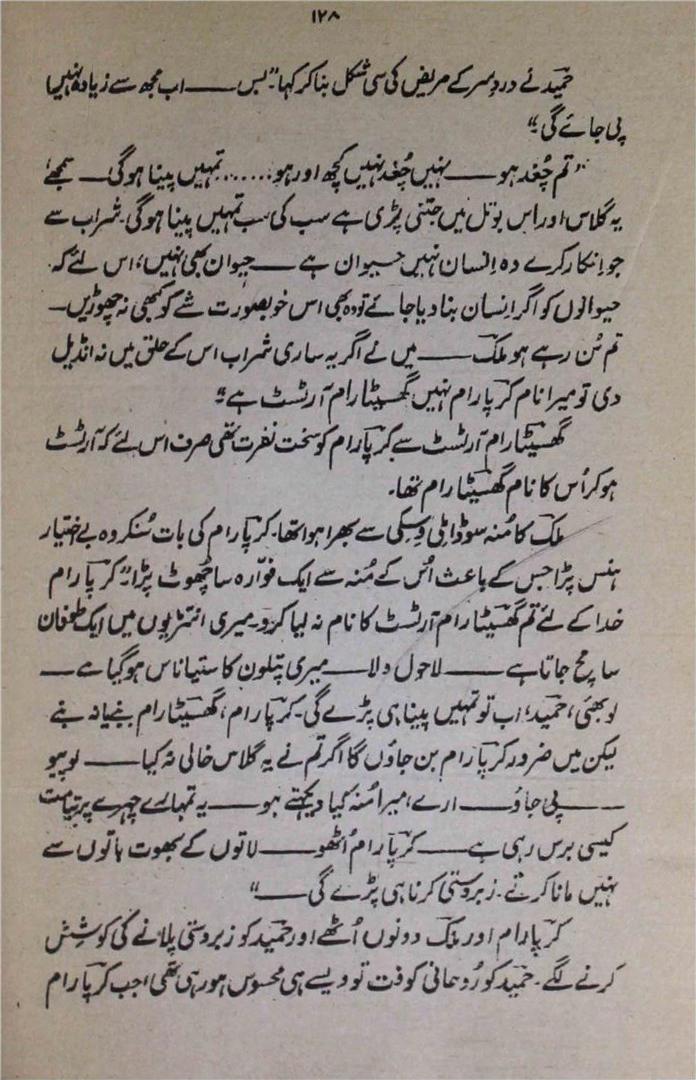 ۱۲۸
حمید نے دردِ سر کے مریض کی سی شکل بنا کر کہا "بس ——— اب مجھ سے زیادہ نہیں
پی جائے گی"
"تم چُغد ہو ——— نہیں چُغد نہیں کچھ اور ہو ...... تمہیں پینا ہوگی — سمجھے،
یہ گلاس اور اس بوتل میں جتنی پڑی ہے سب کی سب تمہیں پینا ہوگی۔ شراب سے
جو انکار کرے وہ انسان نہیں حیوان ہے ——— حیوان بھی نہیں، اس لئے کہ
حیوانوں کو اگر انسان بنا دیا جائے تو وہ بھی اس خوبصورت شے کو کبھی نہ چھوڑیں —
تم سُن رہے ہو ملک ——— میں نے اگر یہ ساری شراب اس کے حلق میں نہ انڈیل
دی تو میرا نام کرپا رام نہیں گھسیٹا رام آرٹسٹ ہے"
گھسیٹا رام آرٹسٹ سے کرپا رام کو سخت نفرت تھی صرف اس لئے کہ آرٹسٹ
ہو کر اُس کا نام گھسیٹا رام تھا۔
ملک کا مُنہ سوڈا ملی وسکی سے بھرا ہوا تھا۔ کرپا رام کی بات سُنکر وہ بے اختیار
ہنس پڑا جس کے باعث اُس کے مُنہ سے ایک فوّارہ سا چُھوٹ پڑا "کرپا رام
خدا کے لئے تم گھسیٹا رام آرٹسٹ کا نام نہ لیا کرو۔ میری انتڑیوں میں ایک طوفان
سا مچ جاتا ہے ——— لاحول ولا ——— میری پتلون کا ستیاناس ہو گیا ہے —
لو بھئی، حمید، اب تو تمہیں پینا ہی پڑے گی۔ کرپا رام، گھسیٹا رام بنے یا نہ بنے
لیکن میں ضرور کرپا رام بن جاؤں گا اگر تم نے یہ گلاس خالی نہ کیا ——— لو پیو
——— پی جاؤ ——— ارے، میرا مُنہ کیا دیکھتے ہو ——— یہ تمہارے چہرے پر یتیمت
کیسی برس رہی ہے ——— کرپا رام اُٹھو ——— لاتوں کے بھوت باتوں سے
نہیں مانا کرتے۔ زبردستی کرنا ہی پڑے گی ———"
کرپا رام اور ملک دونوں اُٹھے اور حمید کو زبردستی پلانے کی کوشش
کرنے لگے۔ حمید کو رُوحانی کوفت تو ویسے ہی محسوس ہو رہی تھی، جب کرپا رام